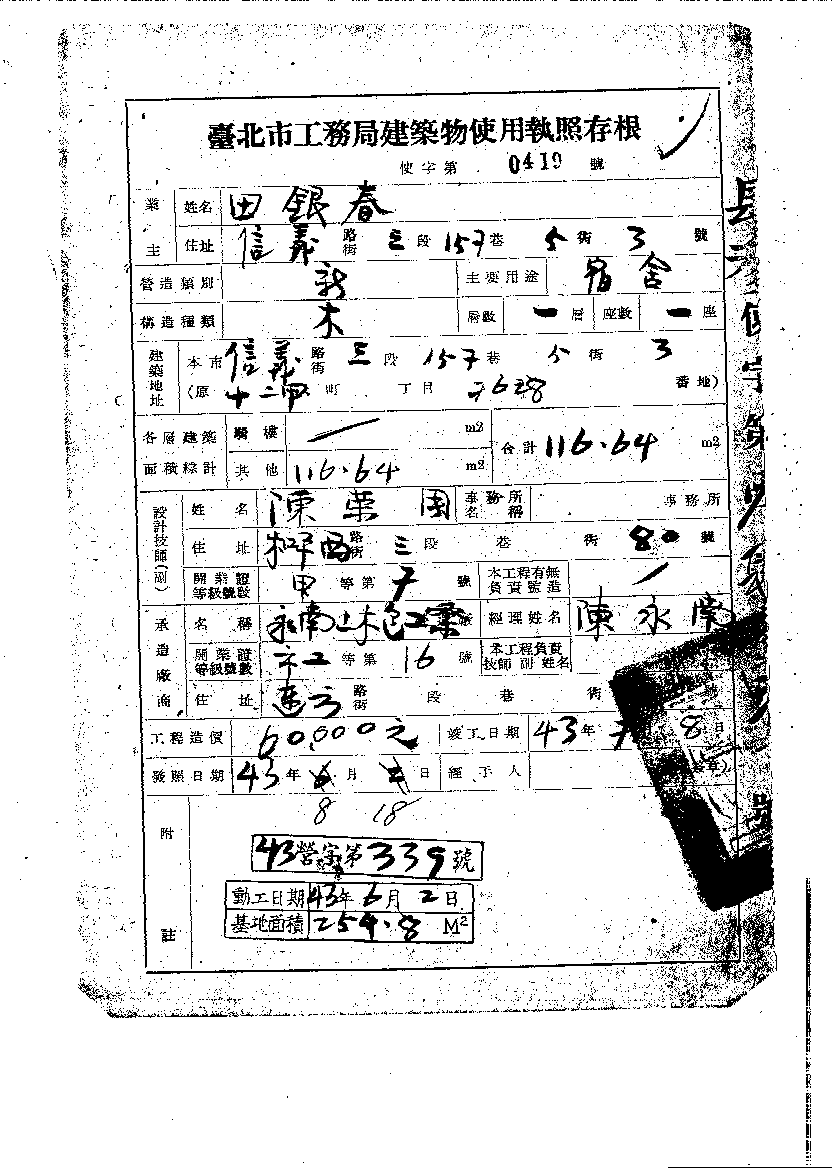 臺北市工務局建築物使用執照存根
使字第 0419 號
業主 姓名 田銀春
住址 信義 路街 三段 157巷 5衖 3 號
營造類別 新 主要用途 宿舍
構造種類 木 層數 一層 座數 一座
建築地址 本市 信義 路街 三段 157巷 5衖 3
(原 十二甲 町 丁目 番地)
各層建築面積綜計 騎樓 / m2 合計 116.64 m2
其他 116.64 m2
設計技師(副) 姓名 陳榮 事務所名稱 事務所
住址 路街 三段 巷 衖 80 號
開業證等級號數 甲 等第 7 號 本工程有無負責監造 /
承造廠商 名稱 永南土木包工業 經理姓名 陳永南
開業證等級號數 等第 16 號 本工程負責技師 副 姓名
住址 路街 段 巷 衖 號
工程造價 60,000元 竣工日期 43年 8日
發照日期 43年 月 日 經手人
8 18
附註
43營字第339號
動工日期 43年6月2日
基地面積 254.8 M²